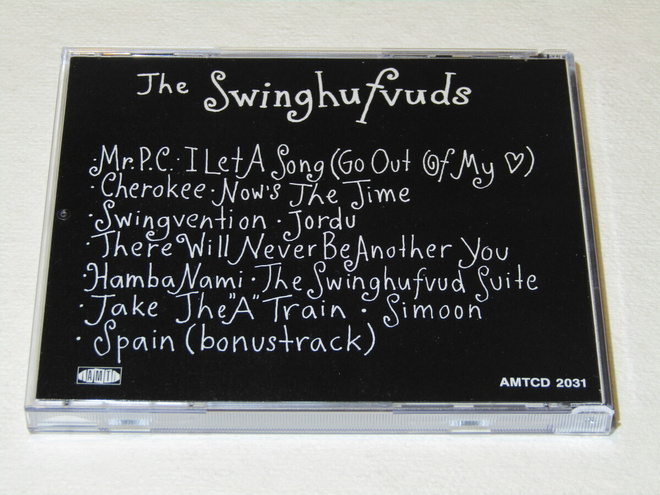 The Swinghufvuds
·Mr.P.C.·I Let A Song (Go Out Of My ♡)
·Cherokee·Now's The Time
·Swingvention·Jordu
·There Will Never Be Another You
·Hamba Nami·The Swinghufvud Suite
·Take The "A" Train·Simoon
·Spain (bonustrack)
AMT
AMTCD 2031